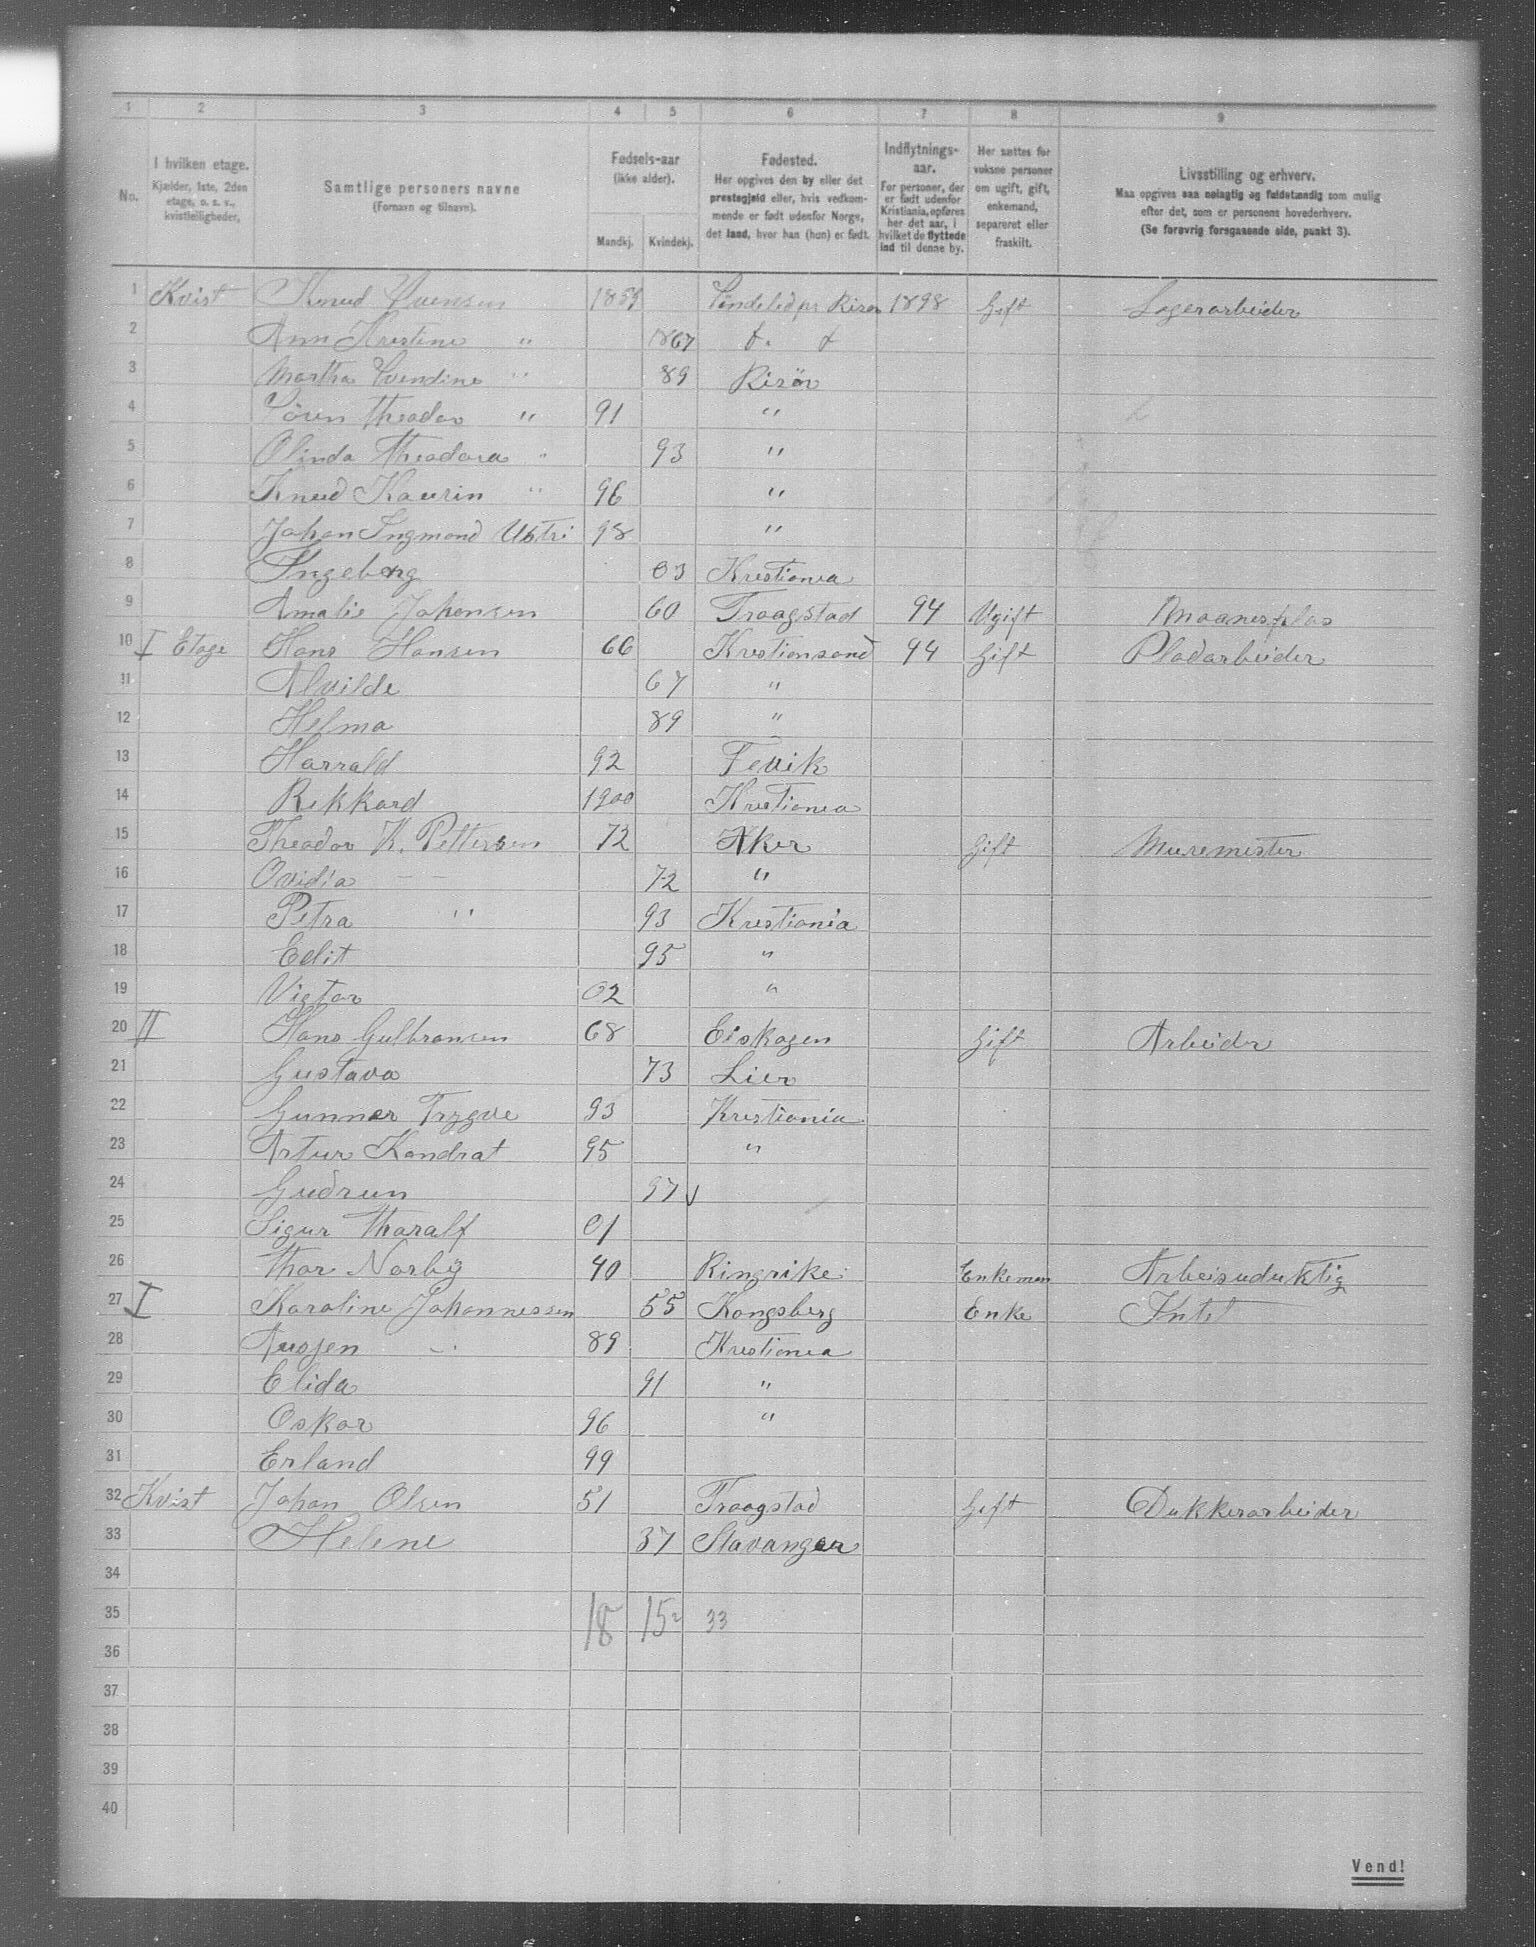 1 2 3 4 5 6 7 8 9
No.
I hvilken etage.
Kjælder, 1ste, 2den
etage, o. s. v.,
kvistleiligheder.
Samtlige personers navne
(Fornavn og tilnavn).
Fødsels-aar
(ikke alder).
Mandkj. Kvindekj.
Fødested.
Her opgives den by eller det
prestegjeld eller, hvis vedkom-
mende er født udenfor Norge,
det land, hvor han (hun) er født.
Indflytnings-
aar.
For personer, der
er født udenfor
Kristiania, opføres
her det aar, i
hvilket de flyttede
ind til denne by.
Her sættes for
voksne personer
om ugift, gift,
enkemand,
separeret eller
fraskilt.
Livsstilling og erhverv.
Maa opgives saa nøiagtig og fuldstændig som mulig
efter det, som er personens hovederhverv.
(Se forøvrig foregaaende side, punkt 3).
1 Kvist Knud Evensen 1855 Risør 1898 Gift Lagerarbeider
2 Ann Kristine " 1867 d. d
3 Martha Evendine " 89 Risör
4 Theodor " 91 "
5 Olinda Theodora " 93 "
6 Knud Kaurin " 96 "
7 Johan Ingmond 98 "
8 Ingeborg 03 Kristiania
9 Amalie Johansen 60 Traagstad 94 Ugift
10 I Etage Hans Hansen 66 Kristiansand 94 Gift Pladarbeider
11 Alvilde 67 "
12 Helma 89 "
13 Harrald 92 Fevik
14 Rikkard 1900 Kristiania
15 Theodor K. Pettersen 72 Aker Gift Muremester
16 Ovidia — — 72 "
17 Petra " 93 Kristiania
18 Edit 95 "
19 Vigtor 02 "
20 II Hans Gulbransen 68 Eiskogen Gift Arbeider
21 Gustava 73 Lier
22 Gunnar Trygve 93 Kristiania
23 Artur Kondrat 95 "
24 Gudrun 97
25 Sigur Tharalf 01
26 Thor Norby 40 Ringrike Enkeman Arbeisuduktig
27 I Karoline Johannessen 55 Kongsberg Enke Intet
28 89 Kristiania
29 Elida 91 "
30 Oskar 96 "
31 Erland 99
32 Kvist Johan Olsen 51 Traagstad Gift Dukkerarbeider
33 Helene 37 Stavanger
34
35 18 15 33
36
37
38
39
40
Vend!